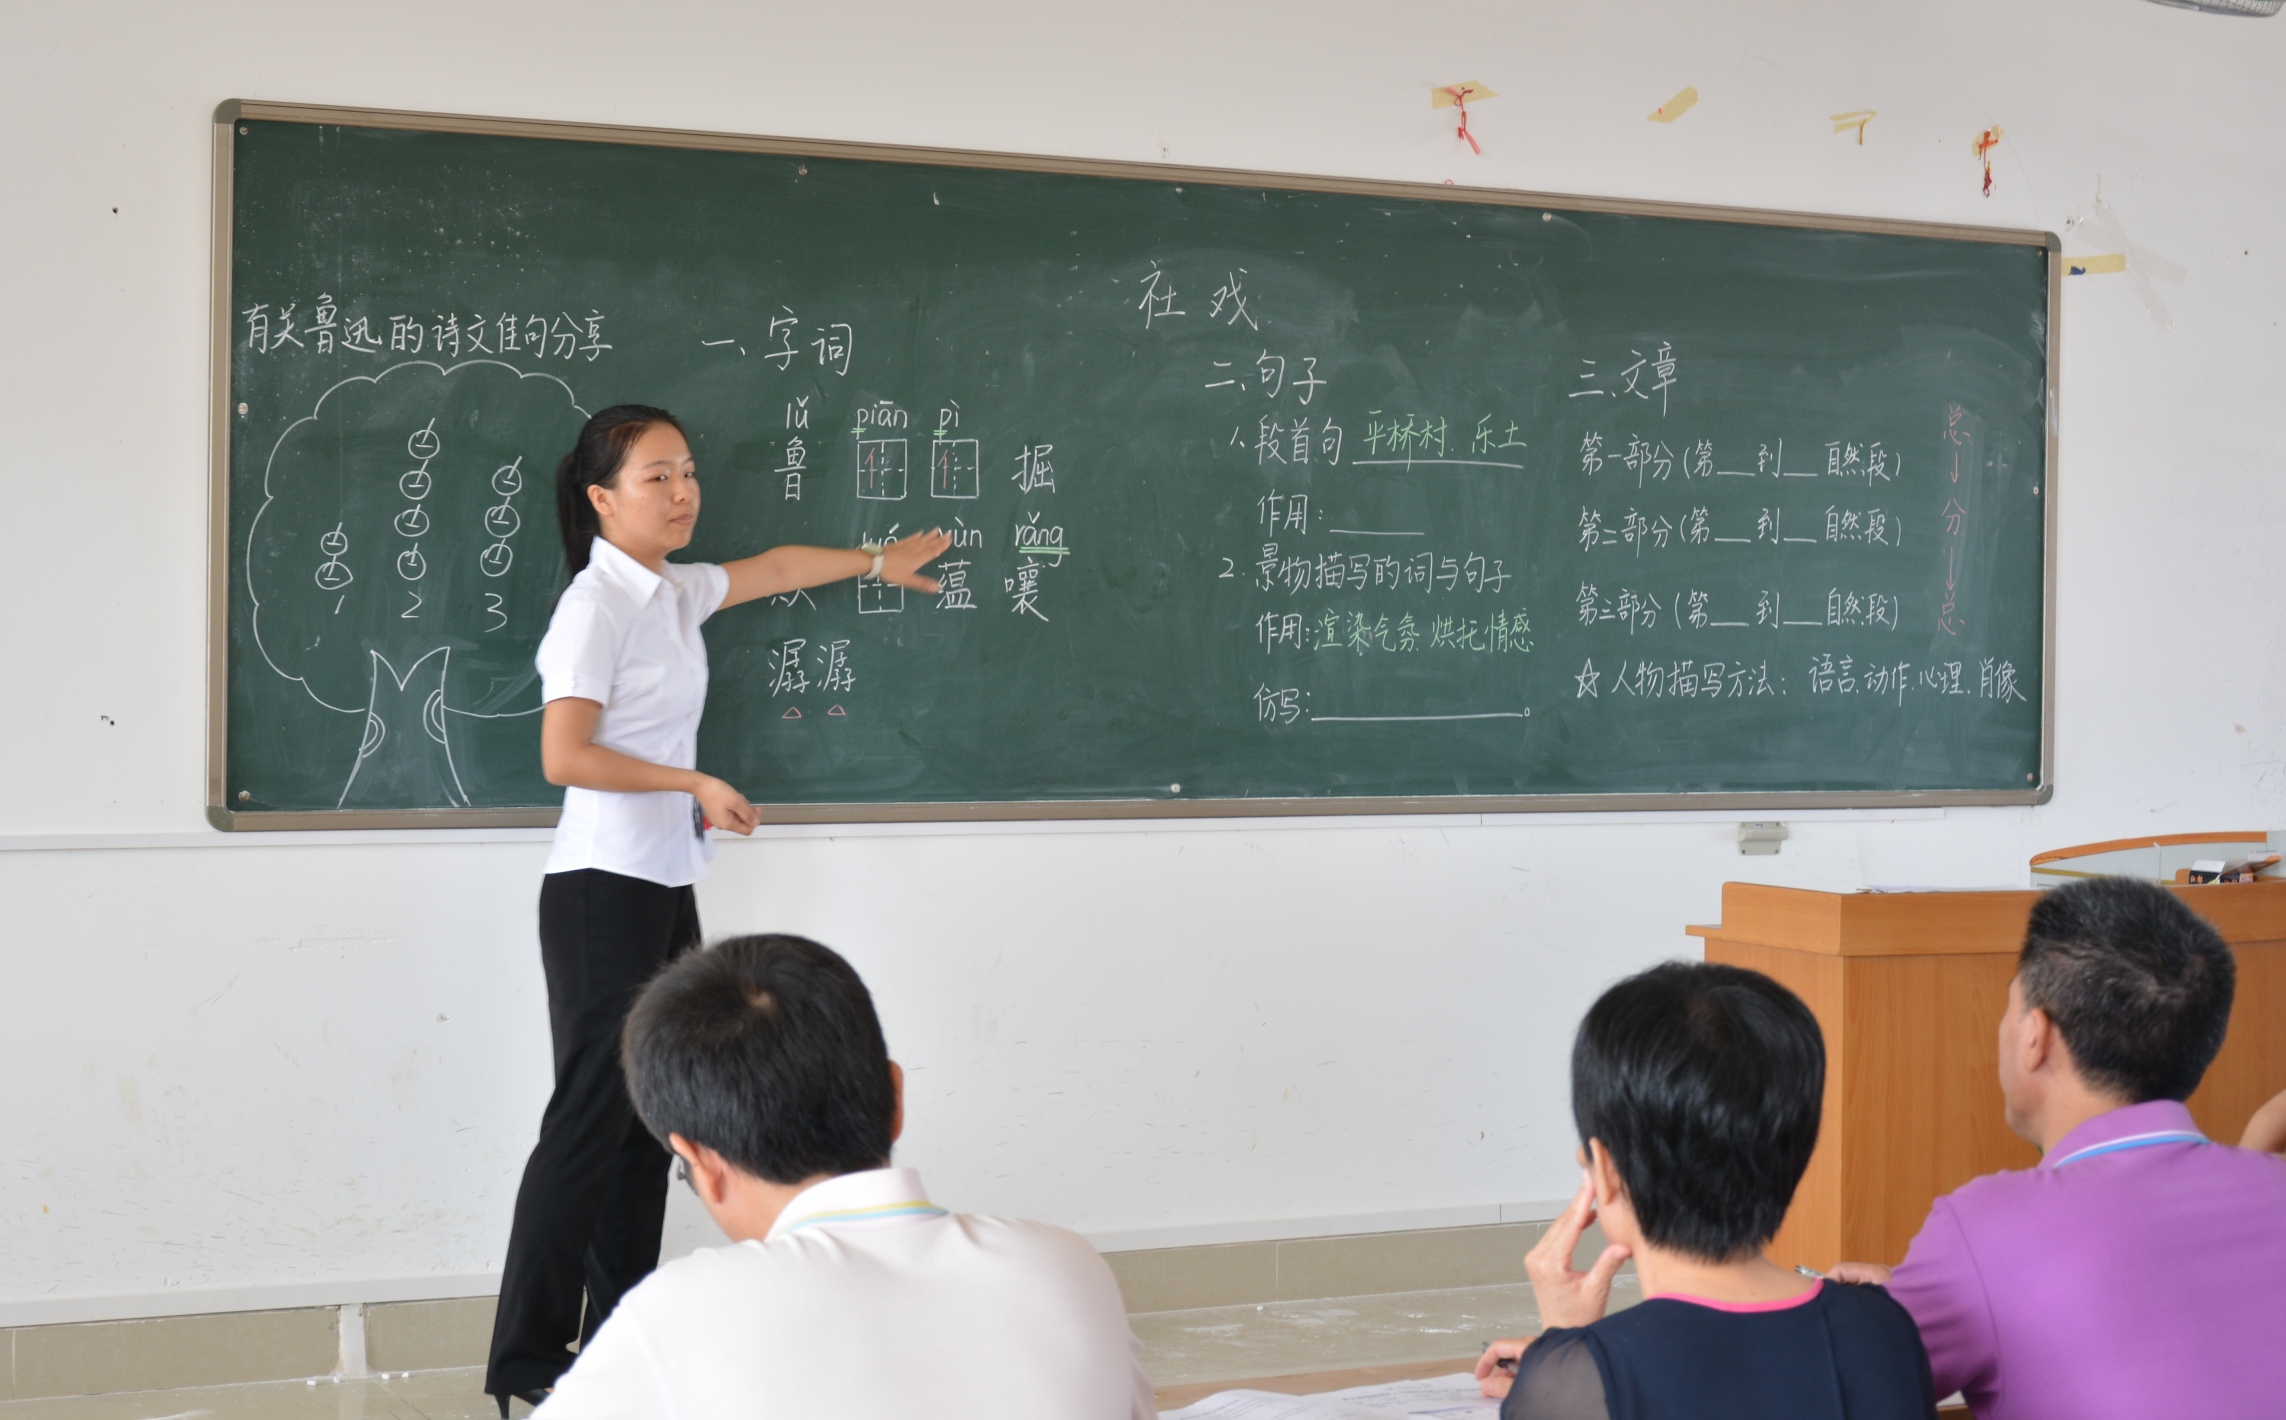 社戏
有关鲁迅的诗文佳句分享
1 2 3
一、字词
lǔ piān pì
鲁 亻 亻 掘
yùn rǎng
蕴 嚷
潺潺
二、句子
1、段首句 平桥村、乐土
作用:______
2.景物描写的词与句子
作用:渲染气氛 烘托情感
仿写:______________。
三、文章
第一部分(第__到__自然段)
第二部分(第__到__自然段)
第三部分(第__到__自然段)
☆人物描写方法:语言、动作、心理、肖像
总→分→总